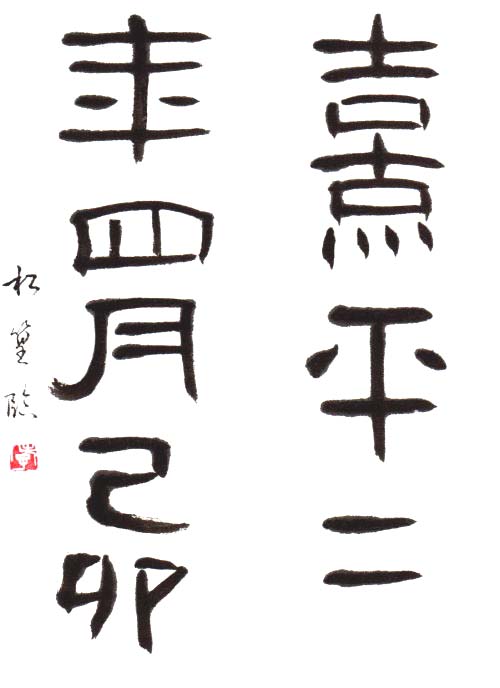 熹平二
年四月己卯
松篁臨